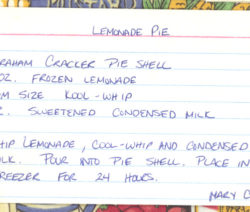 Lemonade Pie
raham Cracker Pie Shell
oz. Frozen Lemonade
m Size Kool-Whip
Sweetened Condensed Milk
hip Lemonade, Cool-Whip and Condensed
lk. Pour into Pie Shell. Place in
reezer for 24 Hours.
Mary C